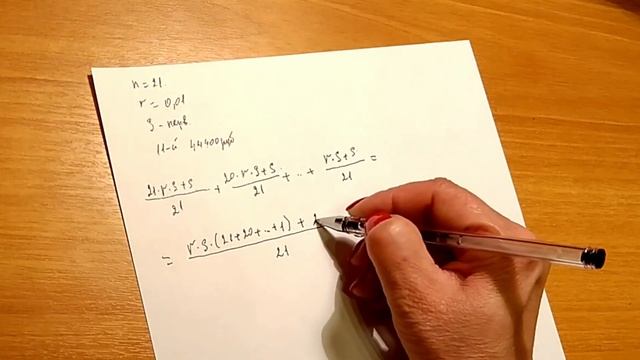 n=21
r=0,01
S - перв.
11-й 44400 руб
21·r·S+S/21 + 20·r·S+S/21 + ... + r·S+S/21 =
= r·S·(21+20+...+1) + 2/21